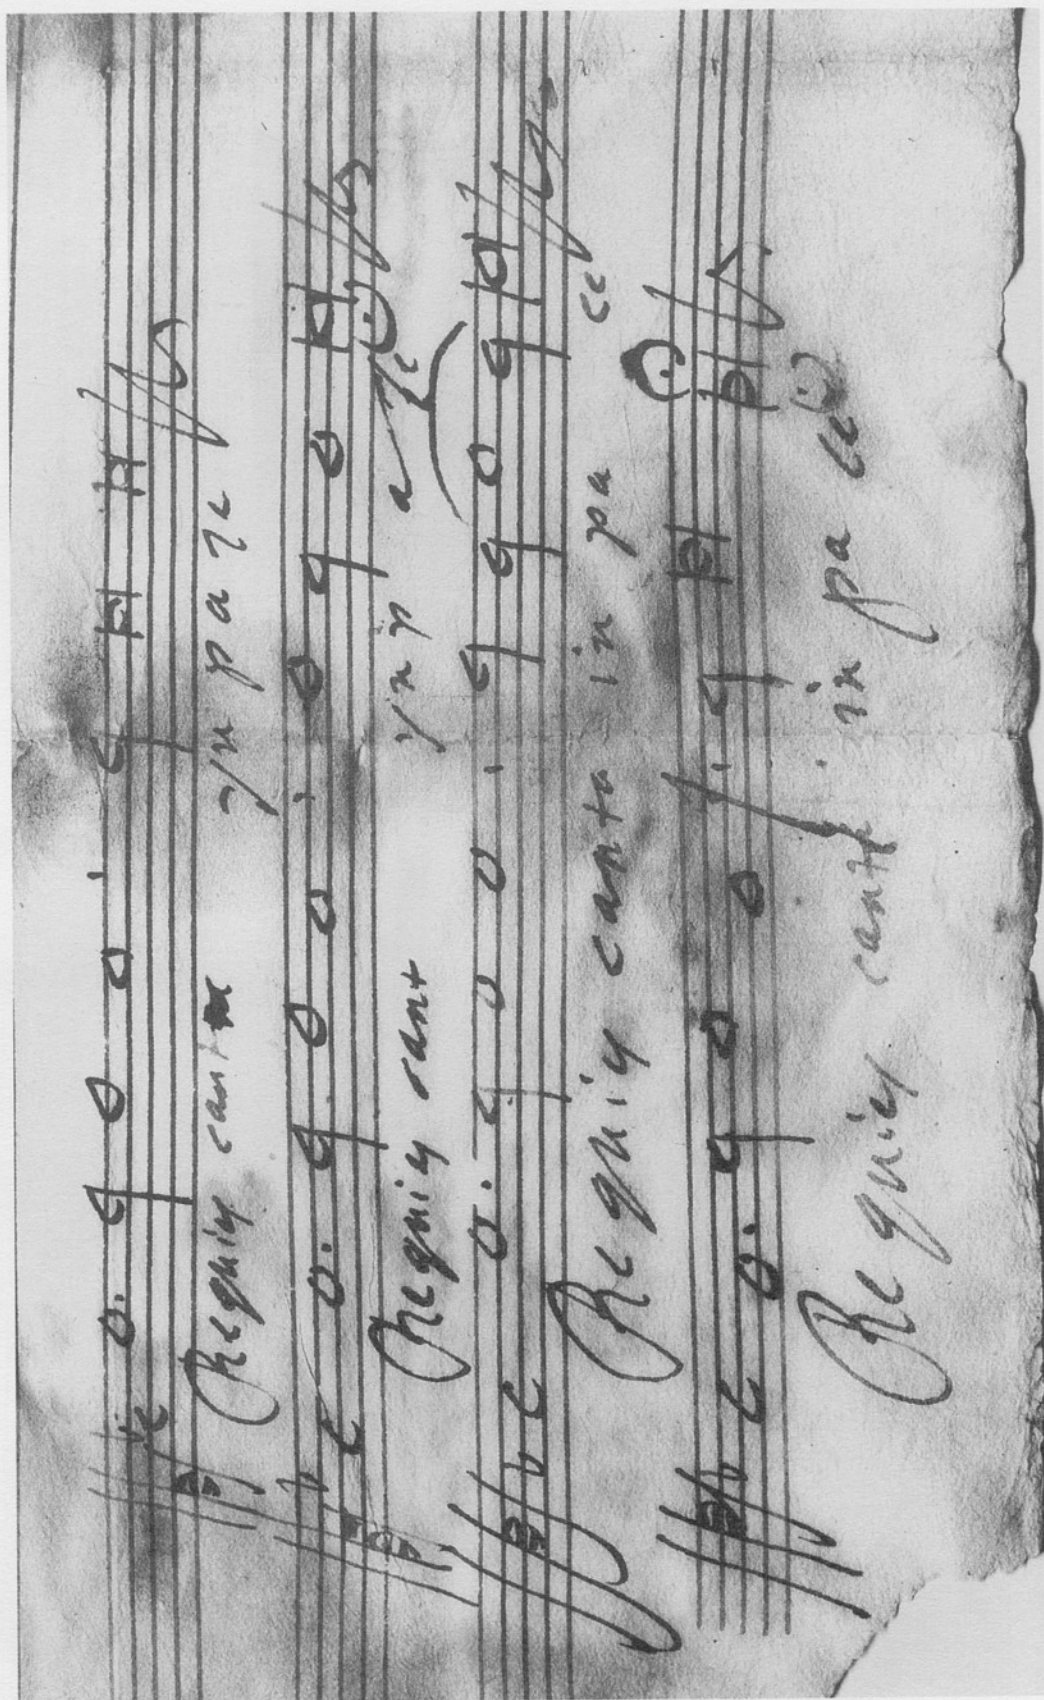 Requiescant yn paze
Requiescant yn paze
Requiescant in pace
Requiescant in pace